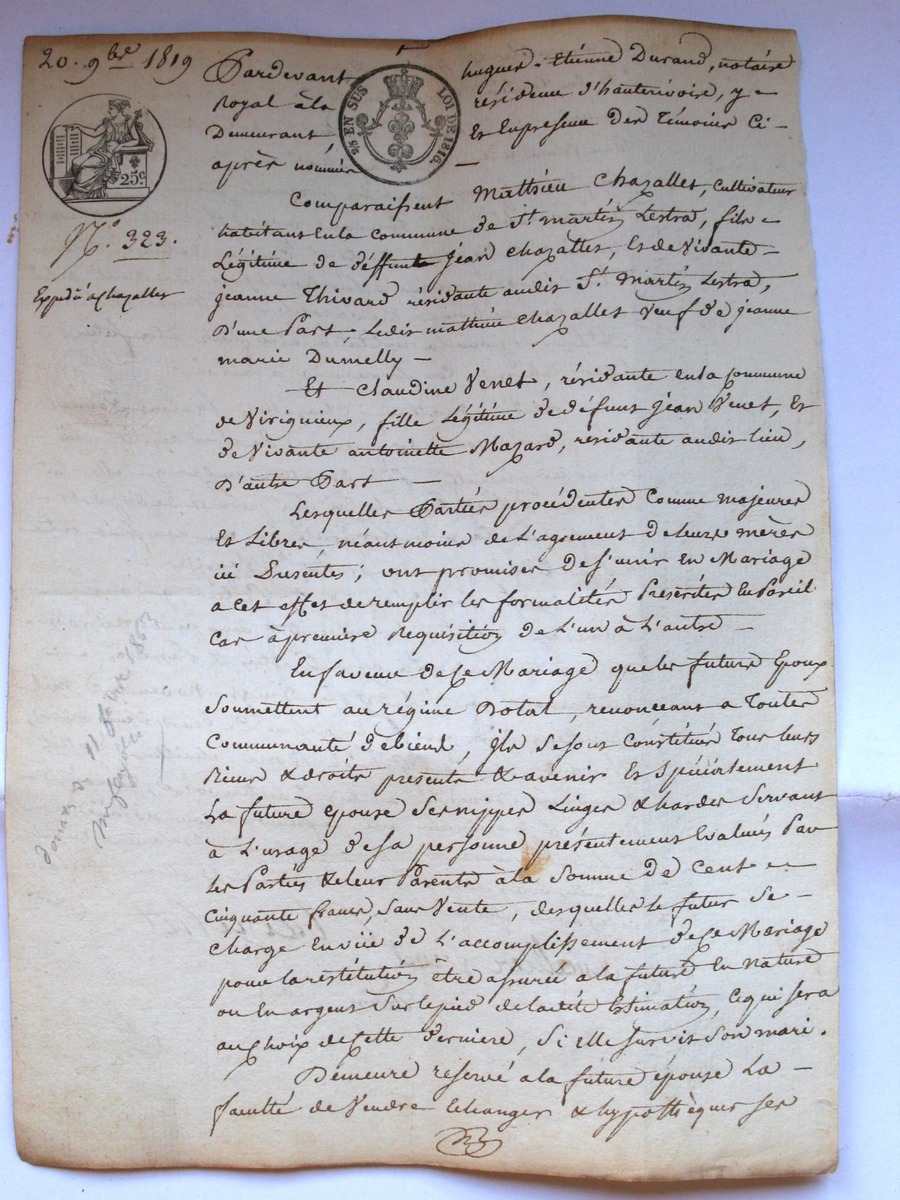 20. 9bre 1819
25c
N.° 323.
Expédié a chazalles
5/5 EN SUS LOI DE 1816.
Pardevant hugues-Etienne Durand, notaire
royal à la résidence d'hauterivoire, y
Demeurant Et En presence des Témoins Ci-
après nommés —
Comparaissent Mathieu Chazalles, Cultivateur
habitant En la commune de St martin Lestra, fils
Légitime de déffunt jean chazalles, Et de Vivante
jeanne Thivard résidante audit St. martin Lestra,
D'une Part. Ledit mathieu chazalles Veuf de jeanne
marie Dumelly —
Et Claudine Venet, résidante en la commune
de Virignieux, fille Légitime de défunt jean Venet, Et
de Vivante antoinette Mazard, résidante audit lieu,
D'autre Part —
Lesquelles Parties procédentes comme majeures
Et Libres, néantmoins de L'agrément de leurs mères
ici Presentes; ont promises de s'unir En Mariage
a cet effet de remplir les formalités Prescrites En Pareil
Cas à premiere Requisition de L'un à L'autre —
En faveur de ce Mariage que les futurs Epoux
Soumettent au régime Dotal, renonceant a Toutes
Communauté de biens, ils se sont Constitués Tous leurs
Biens & droits présents & avenir Et Spécialement
La future epouse ses nippes Linges & hardes Servant
à L'usage de sa personne présentement Evalués Par
les Parties & leur Parents à la Somme de Cent
Cinquante francs, sans Vente, desquelles le futur se
Charge En vüe de L'accomplissement de ce Mariage
pour la restitution être assurée a la future En Nature
ou En argent Sur le pied de ladite Estimation, ce qui sera
au choix de cette derniere, Si elle survit son mari.
Demeure reservé a la future épouse La
faculté de Vendre Echanger & hypothèquer ses